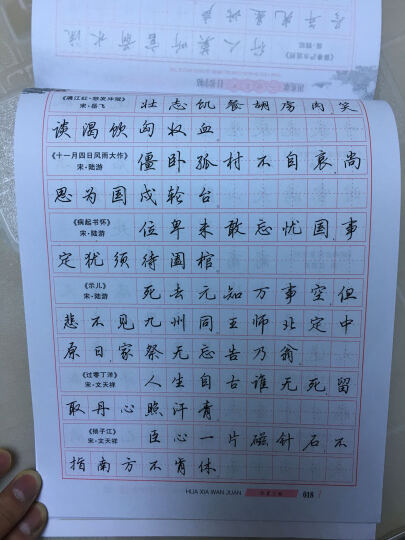 《满江红·怒发冲冠》
宋·岳飞
壮志饥餐胡虏肉，笑
谈渴饮匈奴血。
《十一月四日风雨大作》
宋·陆游
僵卧孤村不自哀，尚
思为国戍轮台。
《病起书怀》
宋·陆游
位卑未敢忘忧国，事
定犹须待阖棺。
《示儿》
宋·陆游
死去元知万事空，但
悲不见九州同。王师北定中
原日，家祭无忘告乃翁。
《过零丁洋》
宋·文天祥
人生自古谁无死，留
取丹心照汗青。
《扬子江》
宋·文天祥
臣心一片磁针石，不
指南方不肯休。
HUA XIA WAN JUAN
018